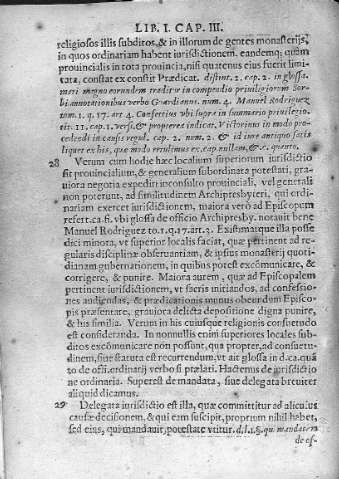 LIB. I. CAP. III.
religiosos illis subditos, & in illorum degentes monasterijs,
in quos ordinariam habent iurisdictionem. eandemq; quam
prouincialis in tota prouincia, nisi quatenus eius fuerit limi
tata, constat ex constit Prædicat. distinct. 2. cap. 2. in glossa
meri magno eorundem reditur in compendio priuilegiorum Sor
bi annotationibus verbo Guardianus. num. 4. Manuel Rodriguez
tom. 1. q. 17. art 4. Confertius vbi supr in summario priuilegio-
tit. 11. cap. 1. versic. & propterea indicat, Victorinus in modo pro-
cedendi in causis regul. cap. 2. num. 2. & id iure antiquo satis
liquet ex his, quæ modo retulimus ex cap nullam, &c. quanto.
28 Verum cum hodie hæc localium superiorum iurisdictio
sit prouincialium, & generalium subordinata potestati, gra-
uiora negotia expediri inconsulto prouinciali, vel generali
non poterunt, ad similitudinem Archipresbyteri, qui ordi-
nariam exercet iurisdictionem, maiora verò ad Episcopum
refert. ca. fi. vbi glossa de officio Archipresby. notauit bene
Manuel Rodriguez to. 1. q. 17. art. 3. Existimatque illa posse
dici minora, vt superior localis faciat, quæ pertinent ad re-
gularis disciplinæ obseruantiam, & ipsius monasterij quoti-
dianam gubernationem, in quibus potest excõmunicare, &
corrigere, & punire. Maiora autem, quæ ad Episcopalem
pertinent iurisdictionem, vt facris initiandos, ad confessio-
nes audiendas, & prædicationis munus obeundum Episco-
pis præsentare, grauiora delicta depositione digna punire,
& his similia. Verum in his cuiusque religionis consuetudo
est consideranda. In nonnullis enim superiores locales sub-
ditos excõmunicare non possunt, qua propter, ad consuetu-
dinem, siue statuta est recurrendum, vt ait glossa in d. ca. quã
to de offi. ordinarij verbo si prælati. Hactenus de iurisdictio
ne ordinaria. Superest de mandata, siue delegata breuiter
aliquid dicamus.
29 Delegata iurisdictio est illa, quæ committitur ad alicuius
causæ decisionem, & qui eam suscipit, proprium nihil habet,
sed eius, qui mandauit, potestate vtitur. d. l. 1. §. qui mandatam
de of-